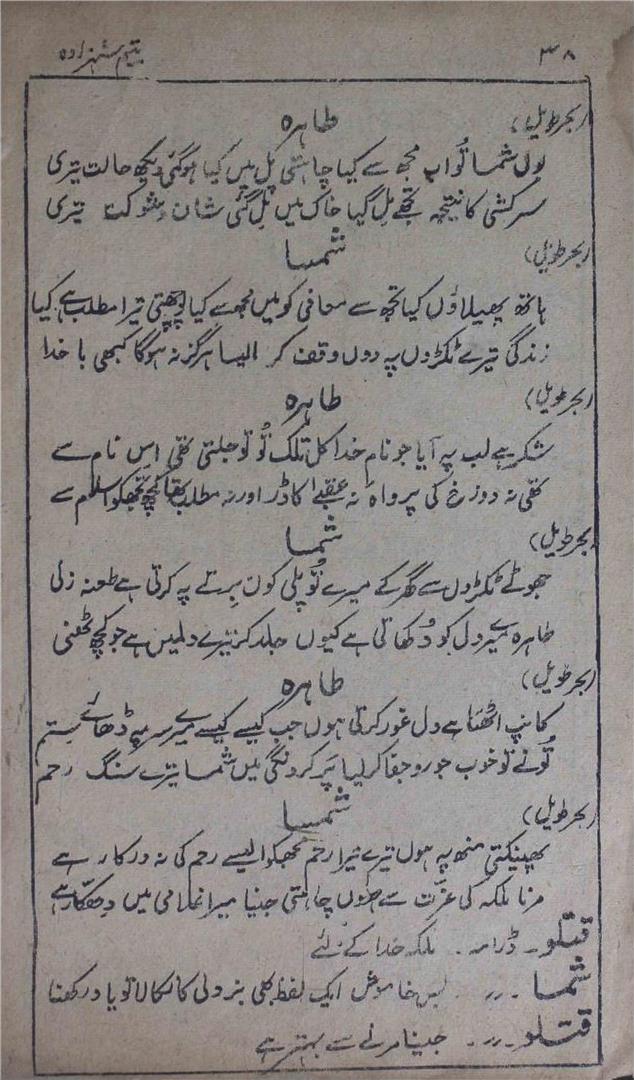 ۳۸
یتیم شہزادہ
(بحر طویل) طاہرہ
بول شما تُو اب مجھ سے کیا چاہتی پل میں کیا ہوگئی دیکھ حالت تیری
سرکشی کا نتیجہ تجھے مل گیا خاک میں مِل گئی شان و شوکت تیری
(بحر طویل) شمسا
ہاتھ پھیلاؤں کیا تجھ سے معافی کو میں مجھ سے کیا پوچھتی تیرا مطلب ہے کیا
زندگی تیرے ٹکڑوں پہ دوں وقف کر ایسا ہرگز نہ ہوگا کبھی با خدا
(بحر طویل) طاہرہ
شکر ہے لب پہ آیا جو نامِ خدا کل تلک تُو تو جلتی تھی اس نام سے
تھی نہ دوزخ کی پرواہ نہ عقبےٰ کا ڈر اور نہ مطلب تھا کچھ تجھکو اسلام سے
(بحر طویل) شمسا
جھوٹے ٹکڑوں سے گھر کے میرے تُو پلی کون برتے پہ کرتی ہے طعنہ زنی
طاہرہ میرے دل کو دُکھاتی ہے کیوں جلد کر تیرے دلمیں ہے جو کچھ ٹھنی
(بحر طویل) طاہرہ
کانپ اٹھتا ہے دل غور کرتی ہوں جب کیسے کیسے میرے سر پہ ڈھائے ستم
تُونے تو خوب جور و جفا کر لیا پر کرونگی میں شمسا تیرے سنگ رحم
(بحر طویل) شمسا
پھینکتی منھ پہ ہوں تیرے تیرا رحم مجھکو ایسے رحم کی نہ درکار ہے
مرنا ملکہ کی عزّت سے ہوں چاہتی جینا میرا غلامی میں دھتکار ہے
قتلو ۔ ڈرامہ ۔ ملکہ خدا کے لئے
شمسا ۔ ،، ۔ بس خاموش ایک لفظ بھی بزدلی کا نکالا تو یاد رکھنا
قتلو ۔ ،، ۔ جینا مرنے سے بہتر ہے